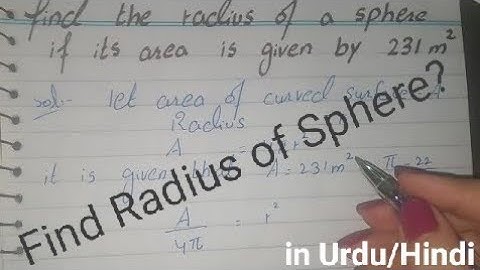 find the radius of a sphere
if its area is given by 231 m²
sol:- let area of curved surface A
Radius
A = r²
it is given that A = 231 m² π = 22
A/4π = r²
Find Radius of Sphere?
in Urdu/Hindi